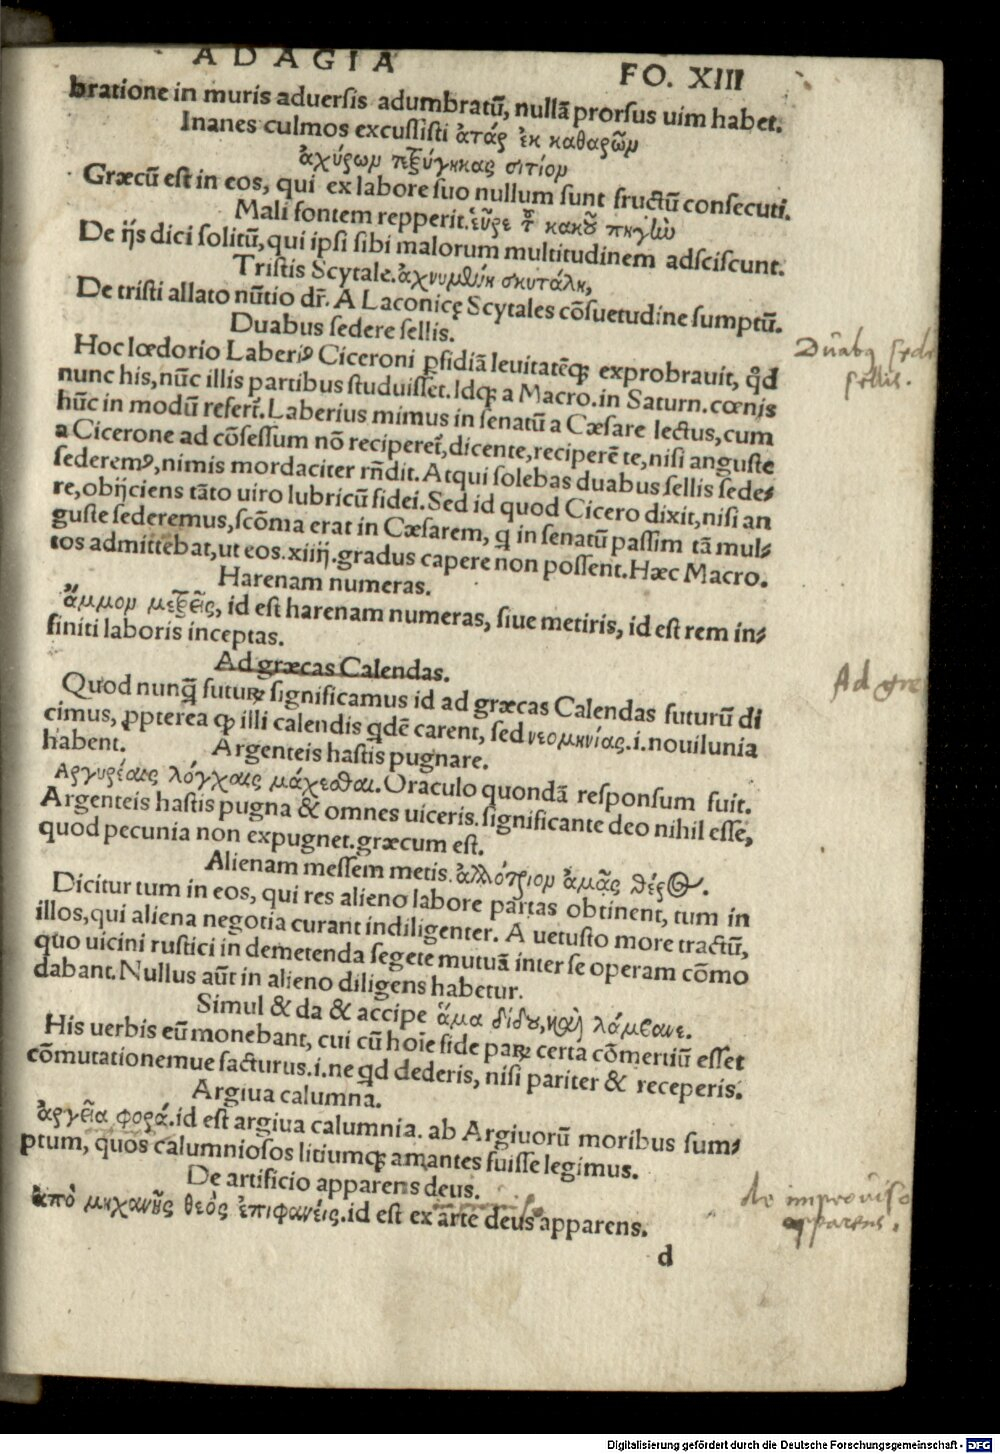 ADAGIA FO. XIII
bratione in muris aduersis adumbratũ, nullã prorsus uim habet.
Inanes culmos excussisti ἀτάρ ἐκ καθαρῶμ
ἀχύρωμ σιτίομ
Græcũ est in eos, qui ex labore suo nullum sunt fructũ consecuti.
Mali fontem repperit. εὗρε κακοῦ πηγὼ
De ijs dici solitũ, qui ipsi sibi malorum multitudinem adsciscunt.
Tristis Scytale. ἀχνυμθύη σκυτάλη,
De tristi allato nũtio dr̃. A Laconicę Scytales cõsuetudine sumptũ.
Duabus sedere sellis.
Hoc lœdorio Laberiꝰ Ciceroni ꝑfidiã leuitatẽqꝫ exprobrauit, qđ
nunc his, nũc illis partibus studuisset. Idqꝫ a Macro. in Saturn. cœnis
hũc in modũ refert̃. Laberius mimus in senatũ a Cæsare lectus, cum
a Cicerone ad cõsessum nõ reciperet̃, dicente, reciperẽ te, nisi anguste
sederemꝰ, nimis mordaciter rñdit. Atqui solebas duabus sellis sede⸗
re, obijciens tãto uiro lubricũ fidei. Sed id quod Cicero dixit, nisi an
guste sederemus, scõma erat in Cæsarem, q in senatũ passim tã mul⸗
tos admittebat, ut eos. xiiij. gradus capere non possent. Hæc Macro.
Harenam numeras.
ἄμμομ μεξεῖς, id est harenam numeras, siue metiris, id est rem in⸗
finiti laboris inceptas.
Ad græcas Calendas.
Quod nunꝗ̃ futuꝝ significamus id ad græcas Calendas futurũ di
cimus, ꝓpterea ꝙ illi calendis qdẽ carent, sed νεομηνίας .i. nouilunia
habent. Argenteis hastis pugnare.
Αργυρέαις λόγχαις μάχεσθαι. Oraculo quondã responsum fuit.
Argenteis hastis pugna & omnes uiceris. significante deo nihil esse,
quod pecunia non expugnet. græcum est.
Alienam messem metis. ἀλλότριομ ἀμᾶς θέρος.
Dicitur tum in eos, qui res alieno labore partas obtinent, tum in
illos, qui aliena negotia curant indiligenter. A uetusto more tractũ,
quo uicini rustici in demetenda segete mutuã inter se operam cõmo
dabant. Nullus aũt in alieno diligens habetur.
Simul & da & accipe ἅμα δίδου, καὶ λάμβανε.
His uerbis eũ monebant, cui cũ hoĩe fide paꝝ certa cõmertiũ esset
cõmutationemue facturus .i. ne qd dederis, nisi pariter & receperis.
Argiua calumna.
ἀργεῖα φορά. id est argiua calumnia. ab Argiuorũ moribus sum⸗
ptum, quos calumniosos litiumqꝫ amantes fuisse legimus.
De artificio apparens deus.
ἀπὸ μηχανῆς θεὸς ἐπιφανείς. id est ex arte deus apparens.
d
Duabꝫ sede
sellis.
Ad gre
de improuiso
apparens.
Digitalisierung gefördert durch die Deutsche Forschungsgemeinschaft - DFG